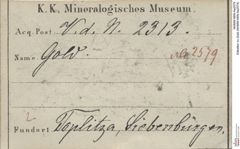 K. K. Mineralogisches Museum.
Acq. Post. V. d. N. 2313.
Name: Gold.
2579
2
Fundort Toplitza, Siebenbürgen.